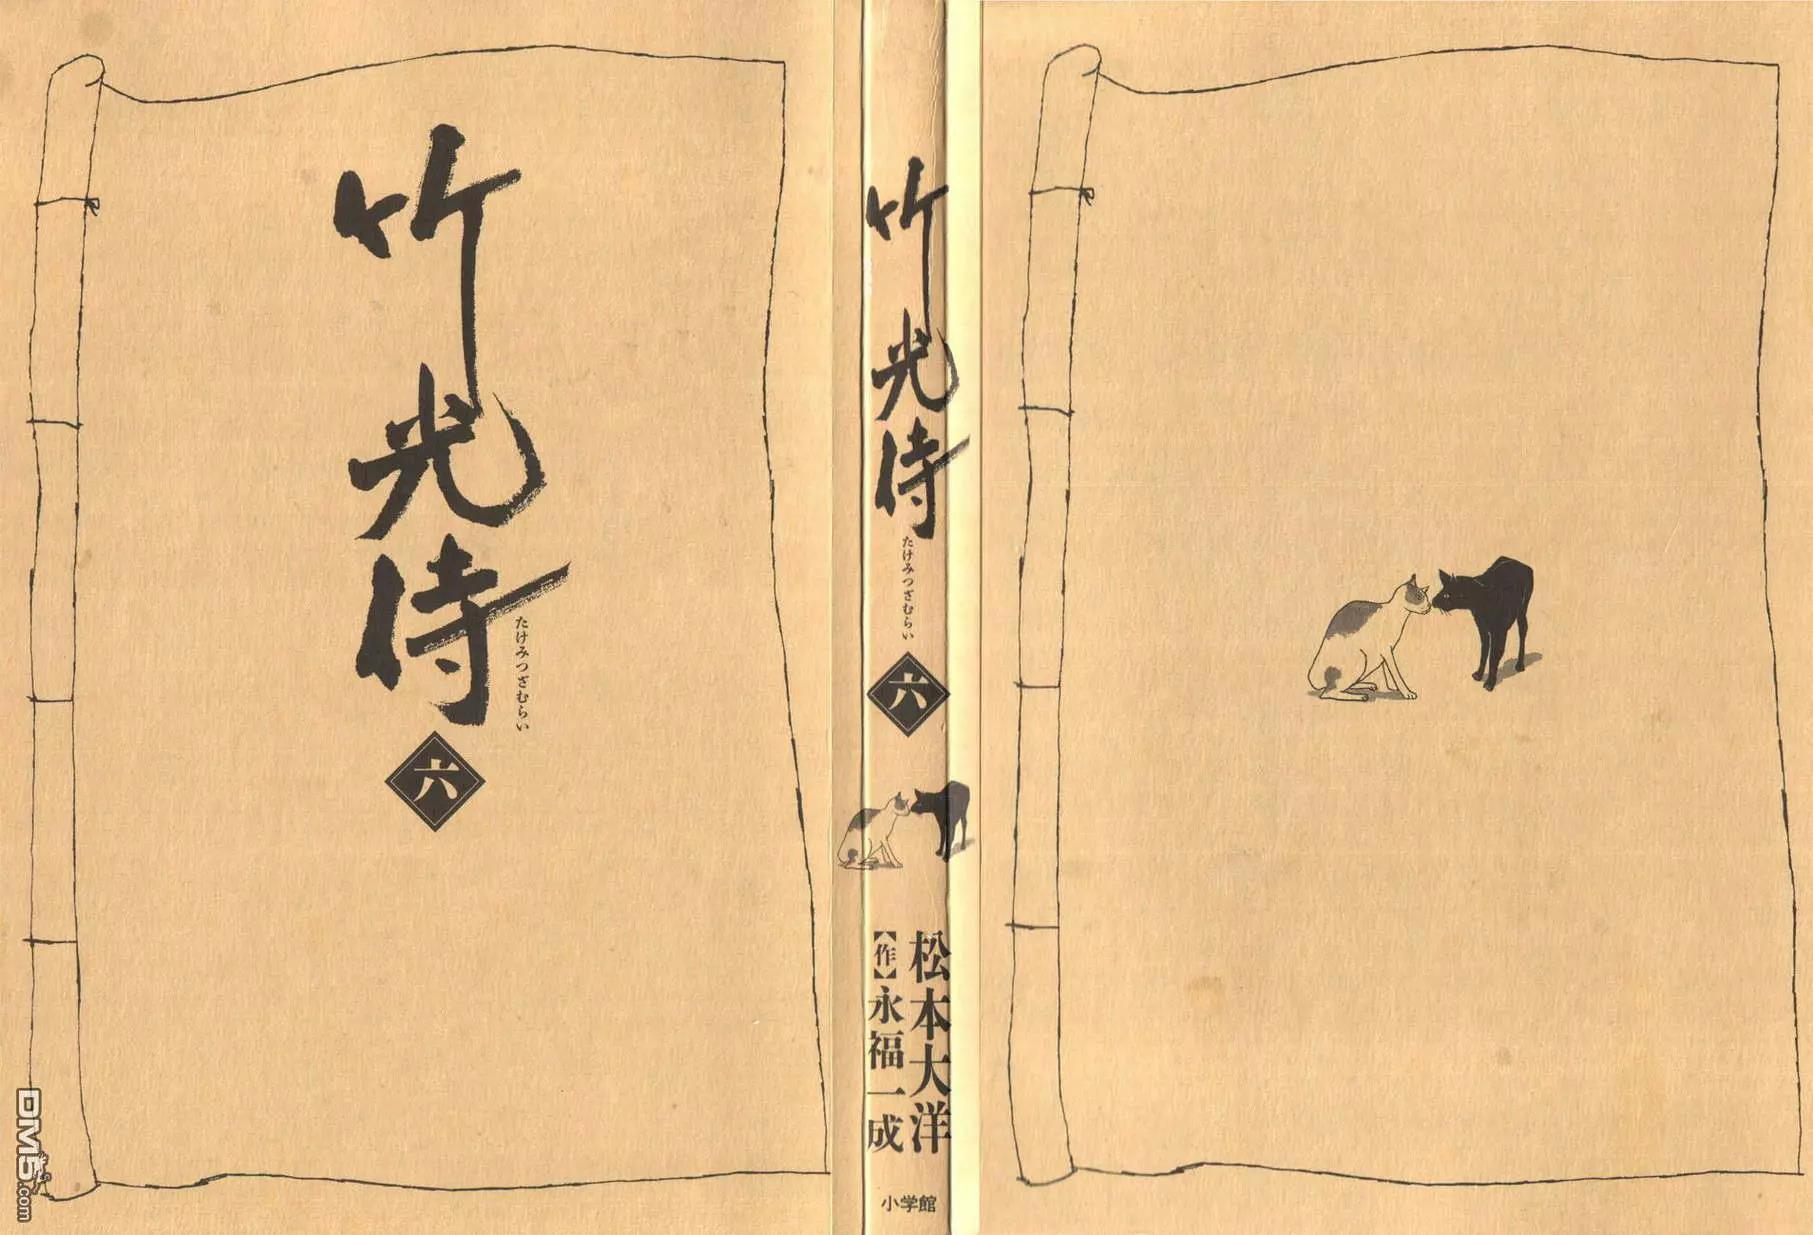 竹光侍
たけみつざむらい
六
竹光侍
たけみつざむらい
六
松本大洋
【作】永福一成
小学館
DM5.com